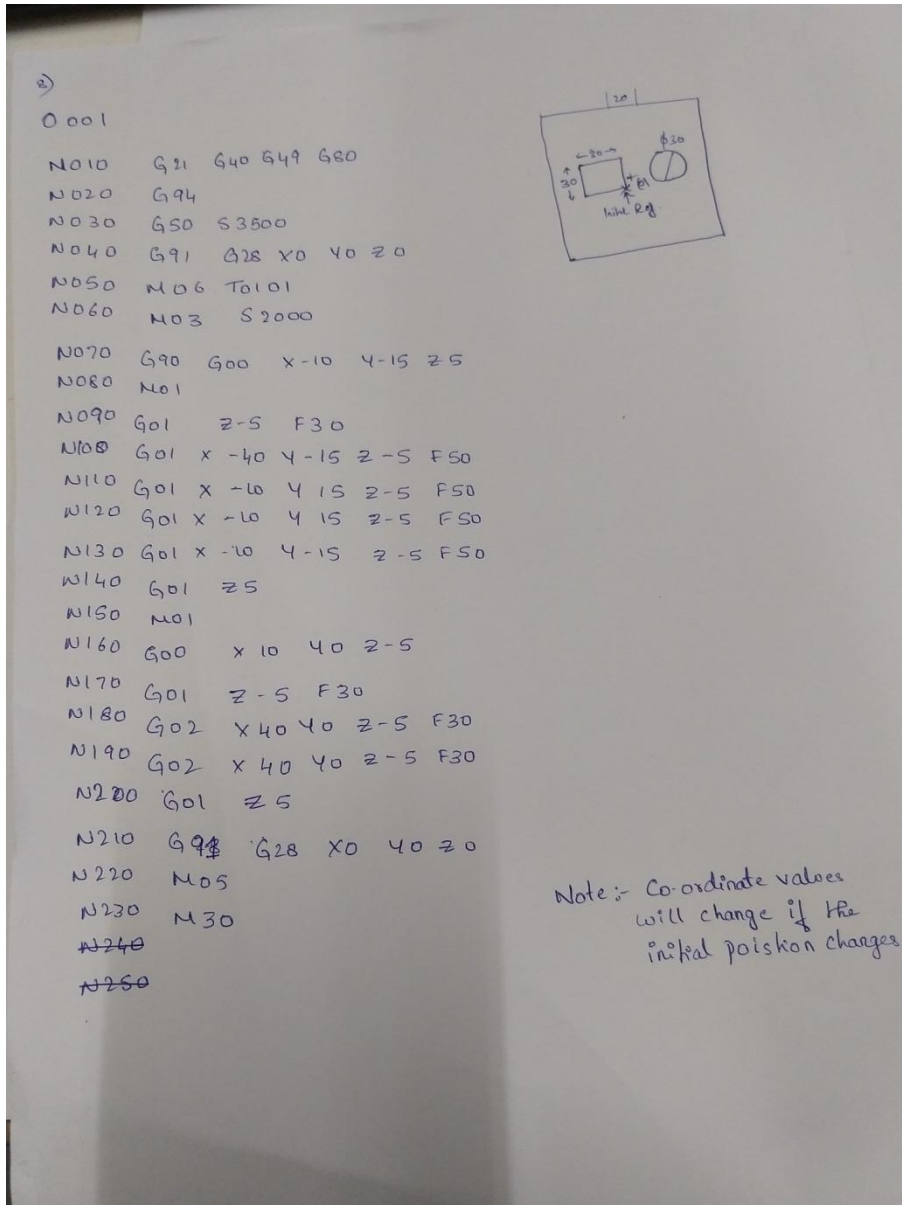 2)
O 001
N010 G21 G40 G49 G80
N020 G94
N030 G50 S3500
N040 G91 G28 X0 Y0 Z0
N050 M06 T0101
N060 M03 S2000
N070 G90 G00 X-10 Y-15 Z5
N080 M01
N090 G01 Z-5 F30
N100 G01 X -40 Y-15 Z-5 F50
N110 G01 X -10 Y 15 Z-5 F50
N120 G01 X -10 Y 15 Z-5 F50
N130 G01 X -10 Y-15 Z-5 F50
N140 G01 Z5
N150 M01
N160 G00 X 10 Y0 Z-5
N170 G01 Z-5 F30
N180 G02 X40 Y0 Z-5 F30
N190 G02 X 40 Y0 Z-5 F30
N200 G01 Z5
N210 G91 G28 X0 Y0 Z0
N220 M05
N230 M30
N240
N250
20
30
ϕ30
30
Ref.
Note :- Co-ordinate values
will change if the
initial poistion changes